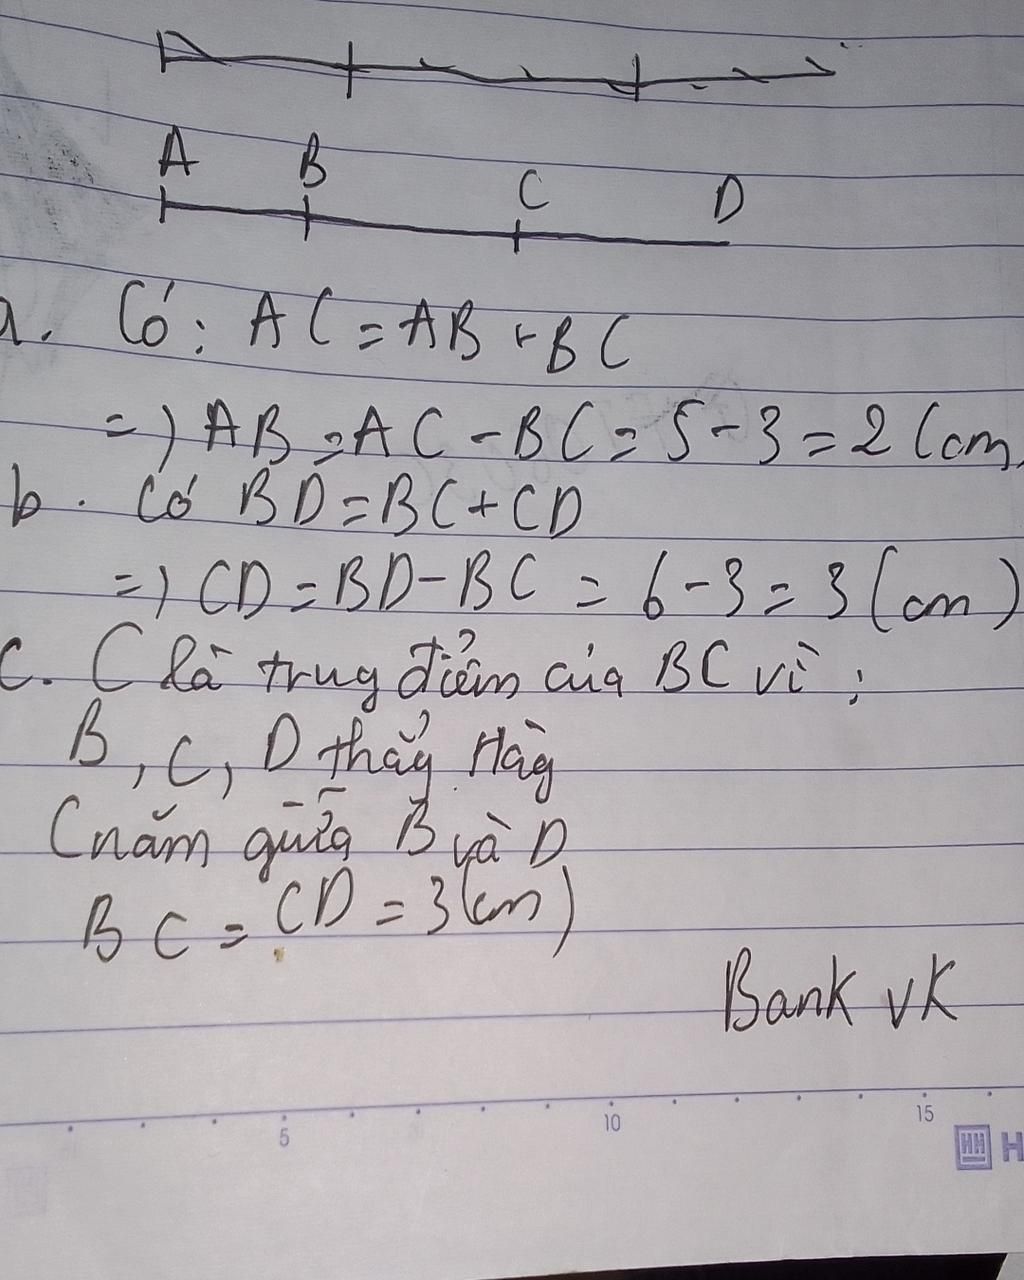 A B C D
a. Có: AC = AB + BC
=) AB = AC - BC = 5 - 3 = 2 (cm
b. Có BD = BC + CD
=) CD = BD - BC = 6 - 3 = 3 (cm)
c. C là trug điểm của BC vì:
B, C, D thẳg Hàg
C nằm giữa B và D
BC = CD = 3 (cm)
Bank vk
5 10 15
HH H